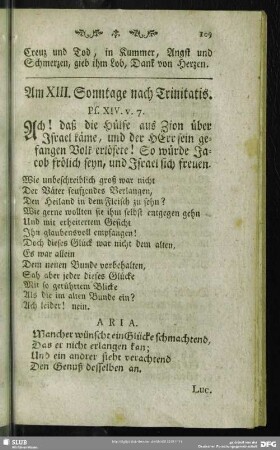 109
Creuz und Tod, in Kummer, Angst und
Schmerzen, gieb ihm Lob, Dank von Herzen.
Am XIII. Sonntage nach Trinitatis.
Ps. XIV. v. 7.
Ach! daß die Hülfe aus Zion über
Israel käme, und der HErr sein ge-
fangen Volk erlösete! So würde Ja-
cob frölich seyn, und Israel sich freuen.
Wie unbeschreiblich groß war nicht
Der Väter seufzendes Verlangen,
Den Heiland in dem Fleisch zu sehn?
Wie gerne wollten sie ihm selbst entgegen gehn
Und mit erheitertem Gesicht
Ihn glaubensvoll empfangen!
Doch dieses Glück war nicht dem alten,
Es war allein
Dem neuen Bunde vorbehalten,
Sah aber jeder dieses Glücke
Mit so gerührtem Blicke
Als die im alten Bunde ein?
Ach leider! nein.
ARIA.
Mancher wünscht ein Glücke schmachtend,
Das er nicht erlangen kan;
Und ein andrer sieht verachtend
Den Genuß desselben an.
Luc.
SLUB
DFG